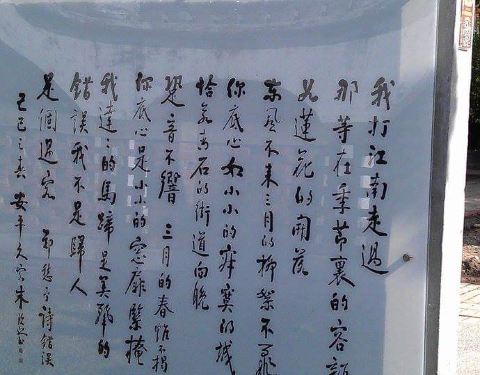 我打江南走過
那等在季節裏的容顏
如蓮花的開落
東風不來三月的柳絮不飛
你底心如小小的寂寞的城
恰若青石的街道向晚
跫音不響 三月的春帷不揭
你底心是小小的窗扉緊掩
我達〻的馬蹄是美麗的
錯誤我不是歸人
是個過客 鄭愁予詩錯誤
己巳之春 安平久客朱